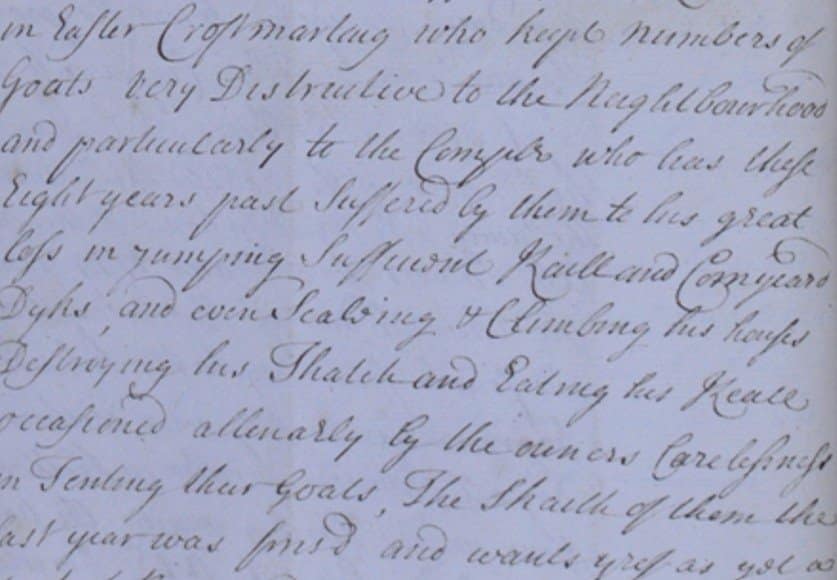 in Easter Croftmartaig who kept numbers of
Goats very Destructive to the Neightbourhood
and particularly to the Complr who has these
Eight years past Suffered by them to his great
loss in jumping Sufficient Kaill and Cornyeard
Dyks, and even Scalving & Climbing his houses
Destroying his Thatch and Eating his Keall
occasioned allenarly by the owners Carelessness
in Tenting their Goats, The Skaith of them the
last year was and wants yrof as yet a